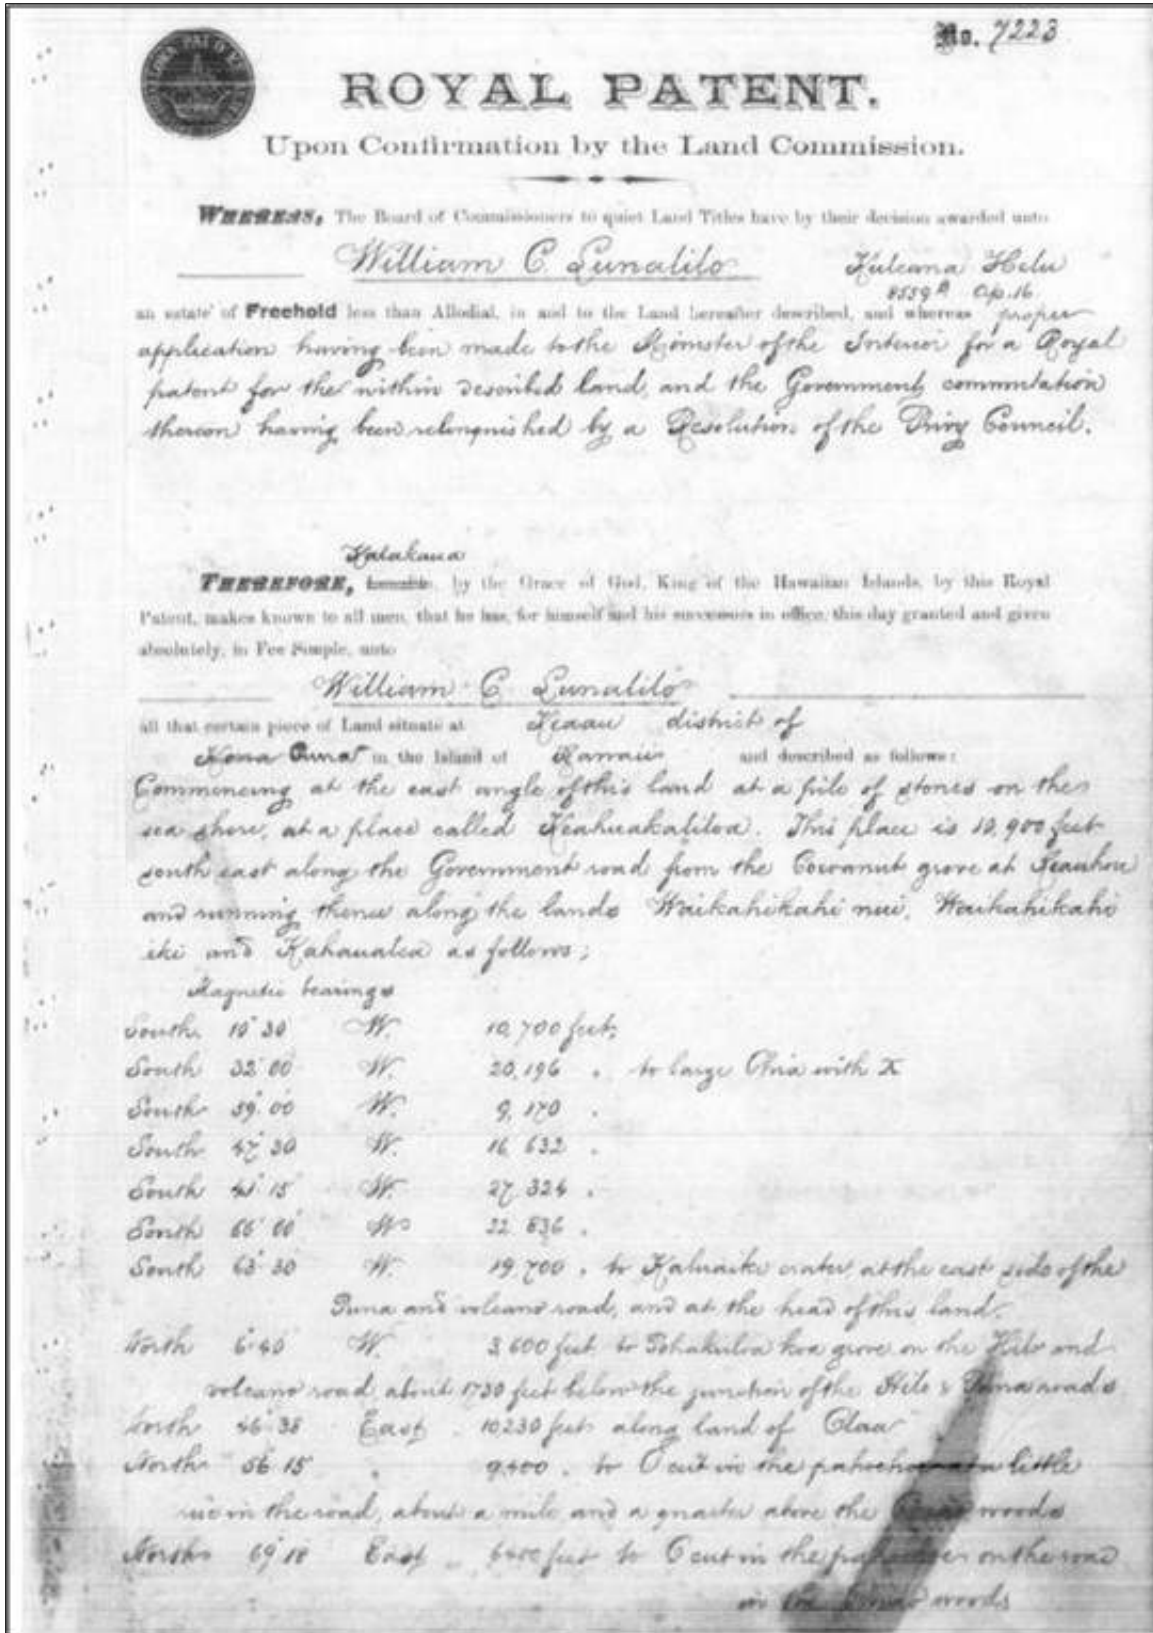 No. 7223
ROYAL PATENT.
Upon Confirmation by the Land Commission.
WHEREAS, The Board of Commissioners to quiet Land Titles have by their decision awarded unto
William C. Lunalilo Kuleana Helu
8559B Ap. 16
an estate of Freehold less than Allodial, in and to the Land hereafter described, and whereas proper
application having been made to the Minister of the Interior for a Royal
patent for the within described land, and the Government commutation
thereon having been relinquished by a Resolution of the Privy Council.
Kalakaua
THEREFORE, by the Grace of God, King of the Hawaiian Islands, by this Royal
Patent, makes known to all men, that he has, for himself and his successors in office, this day granted and given
absolutely, in Fee Simple, unto
William C. Lunalilo
all that certain piece of Land situate at Keaau district of
Puna in the Island of Hawaii and described as follows:
Commencing at the east angle of this land at a pile of stones on the
sea shore, at a place called Keahuakaliloa. This place is 10,900 feet
south east along the Government road from the Cocoanut grove at Keauhou
and running thence along the lands Waikahikahi nui, Waikahikahi
iki and Kahaualea as follows;
Magnetic bearings
South 10° 30' W. 10,700 feet,
South 32° 00' W. 20,196 " to large Ohia with X
South 39° 00' W. 9,170 "
South 47° 30' W. 16,632 "
South 41° 15' W. 27,324 "
South 66° 00' W. 22,836 "
South 63° 30' W. 19,700 " to crater, at the east side of the
Puna and volcano road, and at the head of this land.
North 6° 40' W. 3,600 feet to Pohakuloa koa grove on the Hilo and
volcano road, about 1730 feet below the junction of the Hilo & Puna roads
North 46° 35' East 10230 feet along land of Olaa
North 56° 15' " 9,400 " to O cut in the pahoehoe at a little
rise in the road, about a mile and a quarter above the woods
North 69° East " feet to O cut in the pahoehoe on the road
in the woods